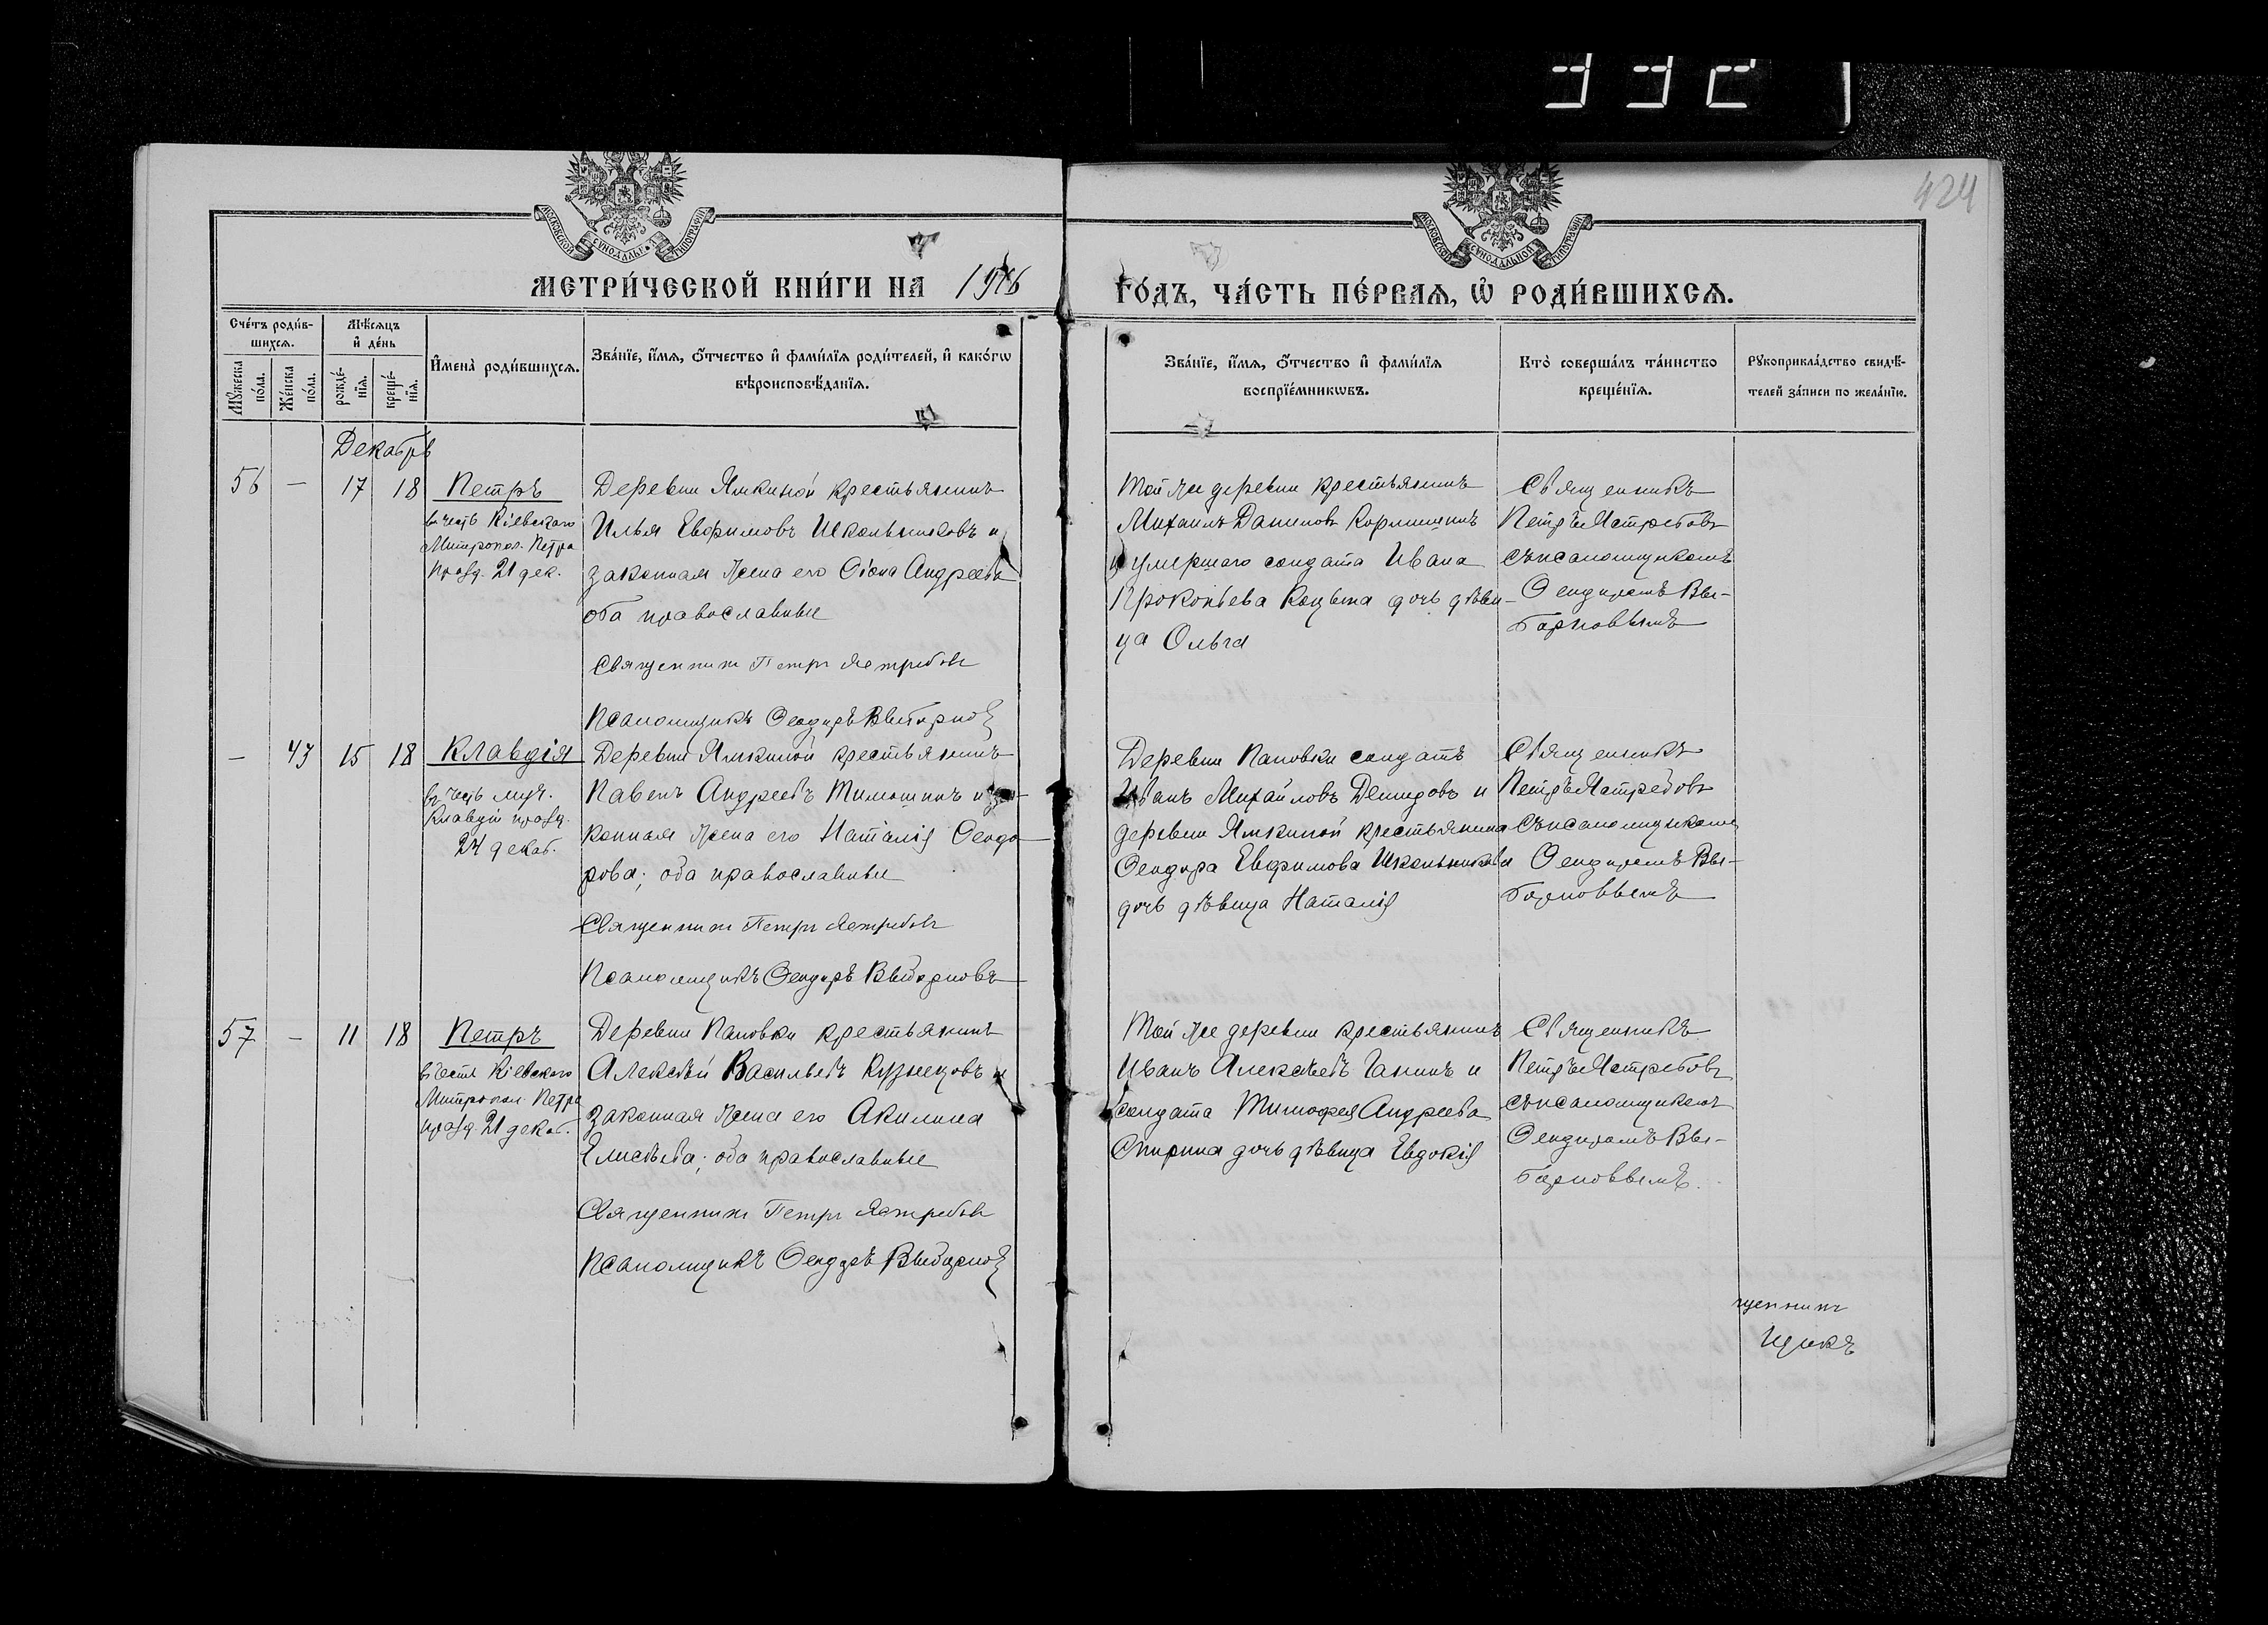 332
424
МОСКОВСКОЙ СѴНОДАЛЬНОЙ ТИПОГРАФІИ
МОСКОВСКОЙ СѴНОДАЛЬНОЙ ТИПОГРАФІИ
МЕТРИ́ЧЕСКОЙ КНИ́ГИ НА 1916 ГО́ДЪ, ЧА́СТЬ ПЕ́РВАѦ, Ѡ҆ РОДИ́ВШИХСѦ.
Сче́тъ роди́в-
шихсѧ.
Мꙋ́жеска
по́ла.
Же́нска
по́ла.
Мѣ́сѧцъ
и҆ де́нь
рожде́-
нїѧ.
креще́-
нїѧ.
И҆мена̀ роди́вшихсѧ.
Зва́нїе, и҆́мѧ, ѻ҆́тчество и҆ фами́лїѧ роди́телей, и҆ како́гѡ
вѣроисповѣ́данїѧ.
Зва́нїе, и҆́мѧ, ѻ҆́тчество и҆ фами́лїѧ
воспрїе́мникѡвъ.
Кто̀ соверша́лъ та́инство
креще́нїѧ.
Рꙋкоприкла́дство свидѣ́-
телей за́писи по жела́нїю.
Декабрь
56 — 17 18 Петръ
въ честь Кіевскаго
Митропол. Петра
празд. 21 дек.
Деревни Ямкиной крестьянинъ
Илья Евфимовъ Школьниковъ и
законная жена его Андреева
оба православные
Священникъ Петръ Ястребовъ
Псаломщикъ Ѳеодоръ Выборновъ
Той же деревни крестьянинъ
Михаилъ Даниловъ
и умершаго солдата Ивана
Прокопьева дочь дѣви-
ца Ольга
Священникъ
Петръ Ястребовъ
съ псаломщикомъ
Ѳеодоромъ Вы-
борновымъ
— 43 15 18 Клавдія
въ честь муч.
Клавдіи празд.
24 декаб.
Деревни Ямкиной крестьянинъ
Павелъ Андреевъ Тимошинъ и за-
конная жена его Наталія Ѳеодо-
рова; оба православные
Священникъ Петръ Ястребовъ
Псаломщикъ Ѳеодоръ Выборновъ
Деревни Пановки солдатъ
Иванъ Михайловъ Демидовъ и
деревни Ямкиной крестьянина
Ѳеодора Евфимова Школьникова
дочь дѣвица Наталія
Священникъ
Петръ Ястребовъ
съ псаломщикомъ
Ѳеодоромъ Вы-
борновымъ
57 — 11 18 Петръ
въ честь Кіевскаго
Митропол. Петра
празд. 21 декаб.
Деревни Пановки крестьянинъ
Алексѣй Васильевъ Кузнецовъ и
законная жена его Акилина
Елисѣева; оба православные
Священникъ Петръ Ястребовъ
Псаломщикъ Ѳеодоръ Выборновъ
Той же деревни крестьянинъ
Иванъ Алексѣевъ Ганинъ и
солдата Тимофея Андреева
Спирина дочь дѣвица Евдокія
Священникъ
Петръ Ястребовъ
съ псаломщикомъ
Ѳеодоромъ Вы-
борновымъ.
щенникъ
щикъ